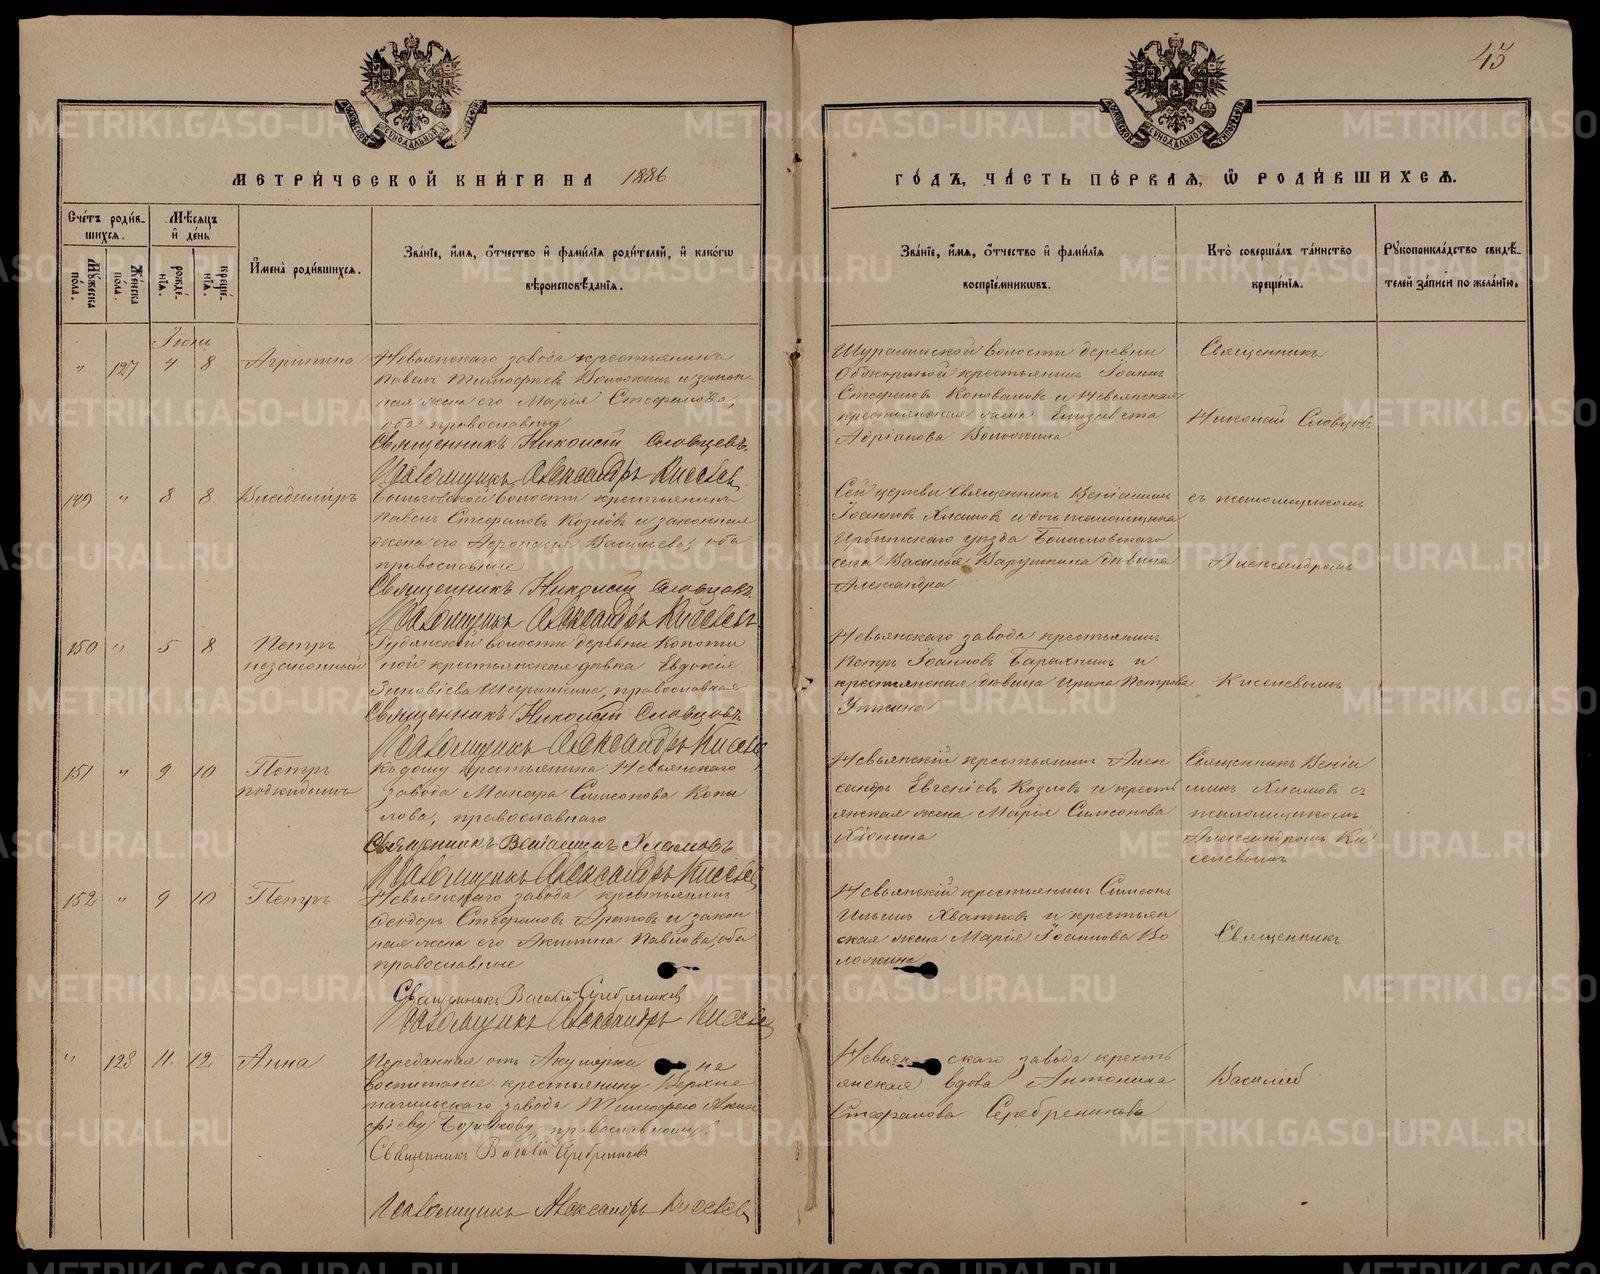 45
МЕТРИ́ЧЕСКОЙ КНИ́ГИ НА 1886
ГО́ДЪ, ЧА́СТЬ ПЕ́РВАЯ, Ѡ РОДИ́ВШИХСѦ.
Сче́тъ роди́в-
шихсѧ.
Мѣ́сѧцъ
и҆ де́нь
Му́жеска по́ла.
Же́нска по́ла.
рожде́нїѧ.
креще́нїѧ.
И҆мена̀ роди́вшихсѧ.
Зва́нїе, и҆́мѧ, ѻ҆́тчество и҆ фами́лїѧ роди́телей, и҆ како́гѡ
вѣроисповѣ́данїѧ.
Зва́нїе, и҆́мѧ, ѻ҆́тчество и҆ фами́лїѧ
воспрїе́мникѡвъ.
Кто̀ соверша́лъ та́инство
креще́нїѧ.
Рꙋкоприкла́дство свидѣ́-
телей за́писи по жела́нїю.
Іюнь
" 127 4 8 Агрипина
Невьянскаго завода крестьянинъ
Павелъ Тимофеевъ Воложинъ и закон
ная жена его Марія Стефанова,
оба православные
Священникъ Николай Словцовъ.
Псаломщикъ Александръ Киселевъ
Шуралинской волости деревни
Обжориной крестьянинъ Іоаннъ
Стефановъ Коноваловъ и Невьянская
крестьянская жена Елизавета
Адріанова Воложина
Священникъ
Николай Словцовъ
149 " 8 8 Владиміръ
волости крестьянинъ
Павелъ Стефановъ Козловъ и законная
жена его Афонасія Васильева, оба
православные
Священникъ Николай Словцовъ.
Псаломщикъ Александръ Киселевъ
Сей церкви Священникъ Веніаминъ
Іоанновъ Хламовъ и дочь псаломщика
Ирбитскаго уѣзда
села Василья дѣвица
Александра
съ псаломщикомъ
Александромъ
150 " 5 8 Петръ
незаконный
Рудянской волости деревни
ной крестьянская дѣвка Евдокія
Зиновіева православная
Священникъ Николай Словцовъ.
Псаломщикъ Александръ Киселевъ
Невьянскаго завода крестьянинъ
Петръ Іоанновъ и
крестьянская дѣвица Ирина Петрова
Уткина
Киселевымъ
151 " 9 10 Петръ
подкидышъ
Къ дому крестьянина Невьянскаго
завода Макара Симеонова Копы
лова, православнаго
Священникъ Веніаминъ Хламовъ
Псаломщикъ Александръ Киселевъ
Невьянскій крестьянинъ Алек
сандръ Евгеніевъ Козловъ и кресть
янская жена Марія Симеонова
Хіонина
Священникъ Веніа
минъ Хламовъ съ
псаломщикомъ
Александромъ Ки
селевымъ
152 " 9 10 Петръ
Невьянскаго завода крестьянинъ
Ѳеодоръ Стефановъ Араповъ и закон
ная жена его Акилина Павлова, оба
православные
Священникъ Василій Серебренниковъ
Псаломщикъ Александръ Киселевъ
Невьянскій крестьянинъ Симеонъ
Ильинъ Хватковъ и крестьян
ская жена Марія Іоаннова Во
ложина
Священникъ
" 128 11 12 Анна
Переданная отъ Акушерки на
воспитаніе крестьянину Верхне
тагильскаго завода Тимофею Акин
фіеву Боровкову, православному.
Священникъ Василій Серебренниковъ
Псаломщикъ Александръ Киселевъ
Невьянскаго завода кресть
янская вдова Антонина
Стефанова Серебреникова
Василій
METRIKI.GASO-URAL.RU